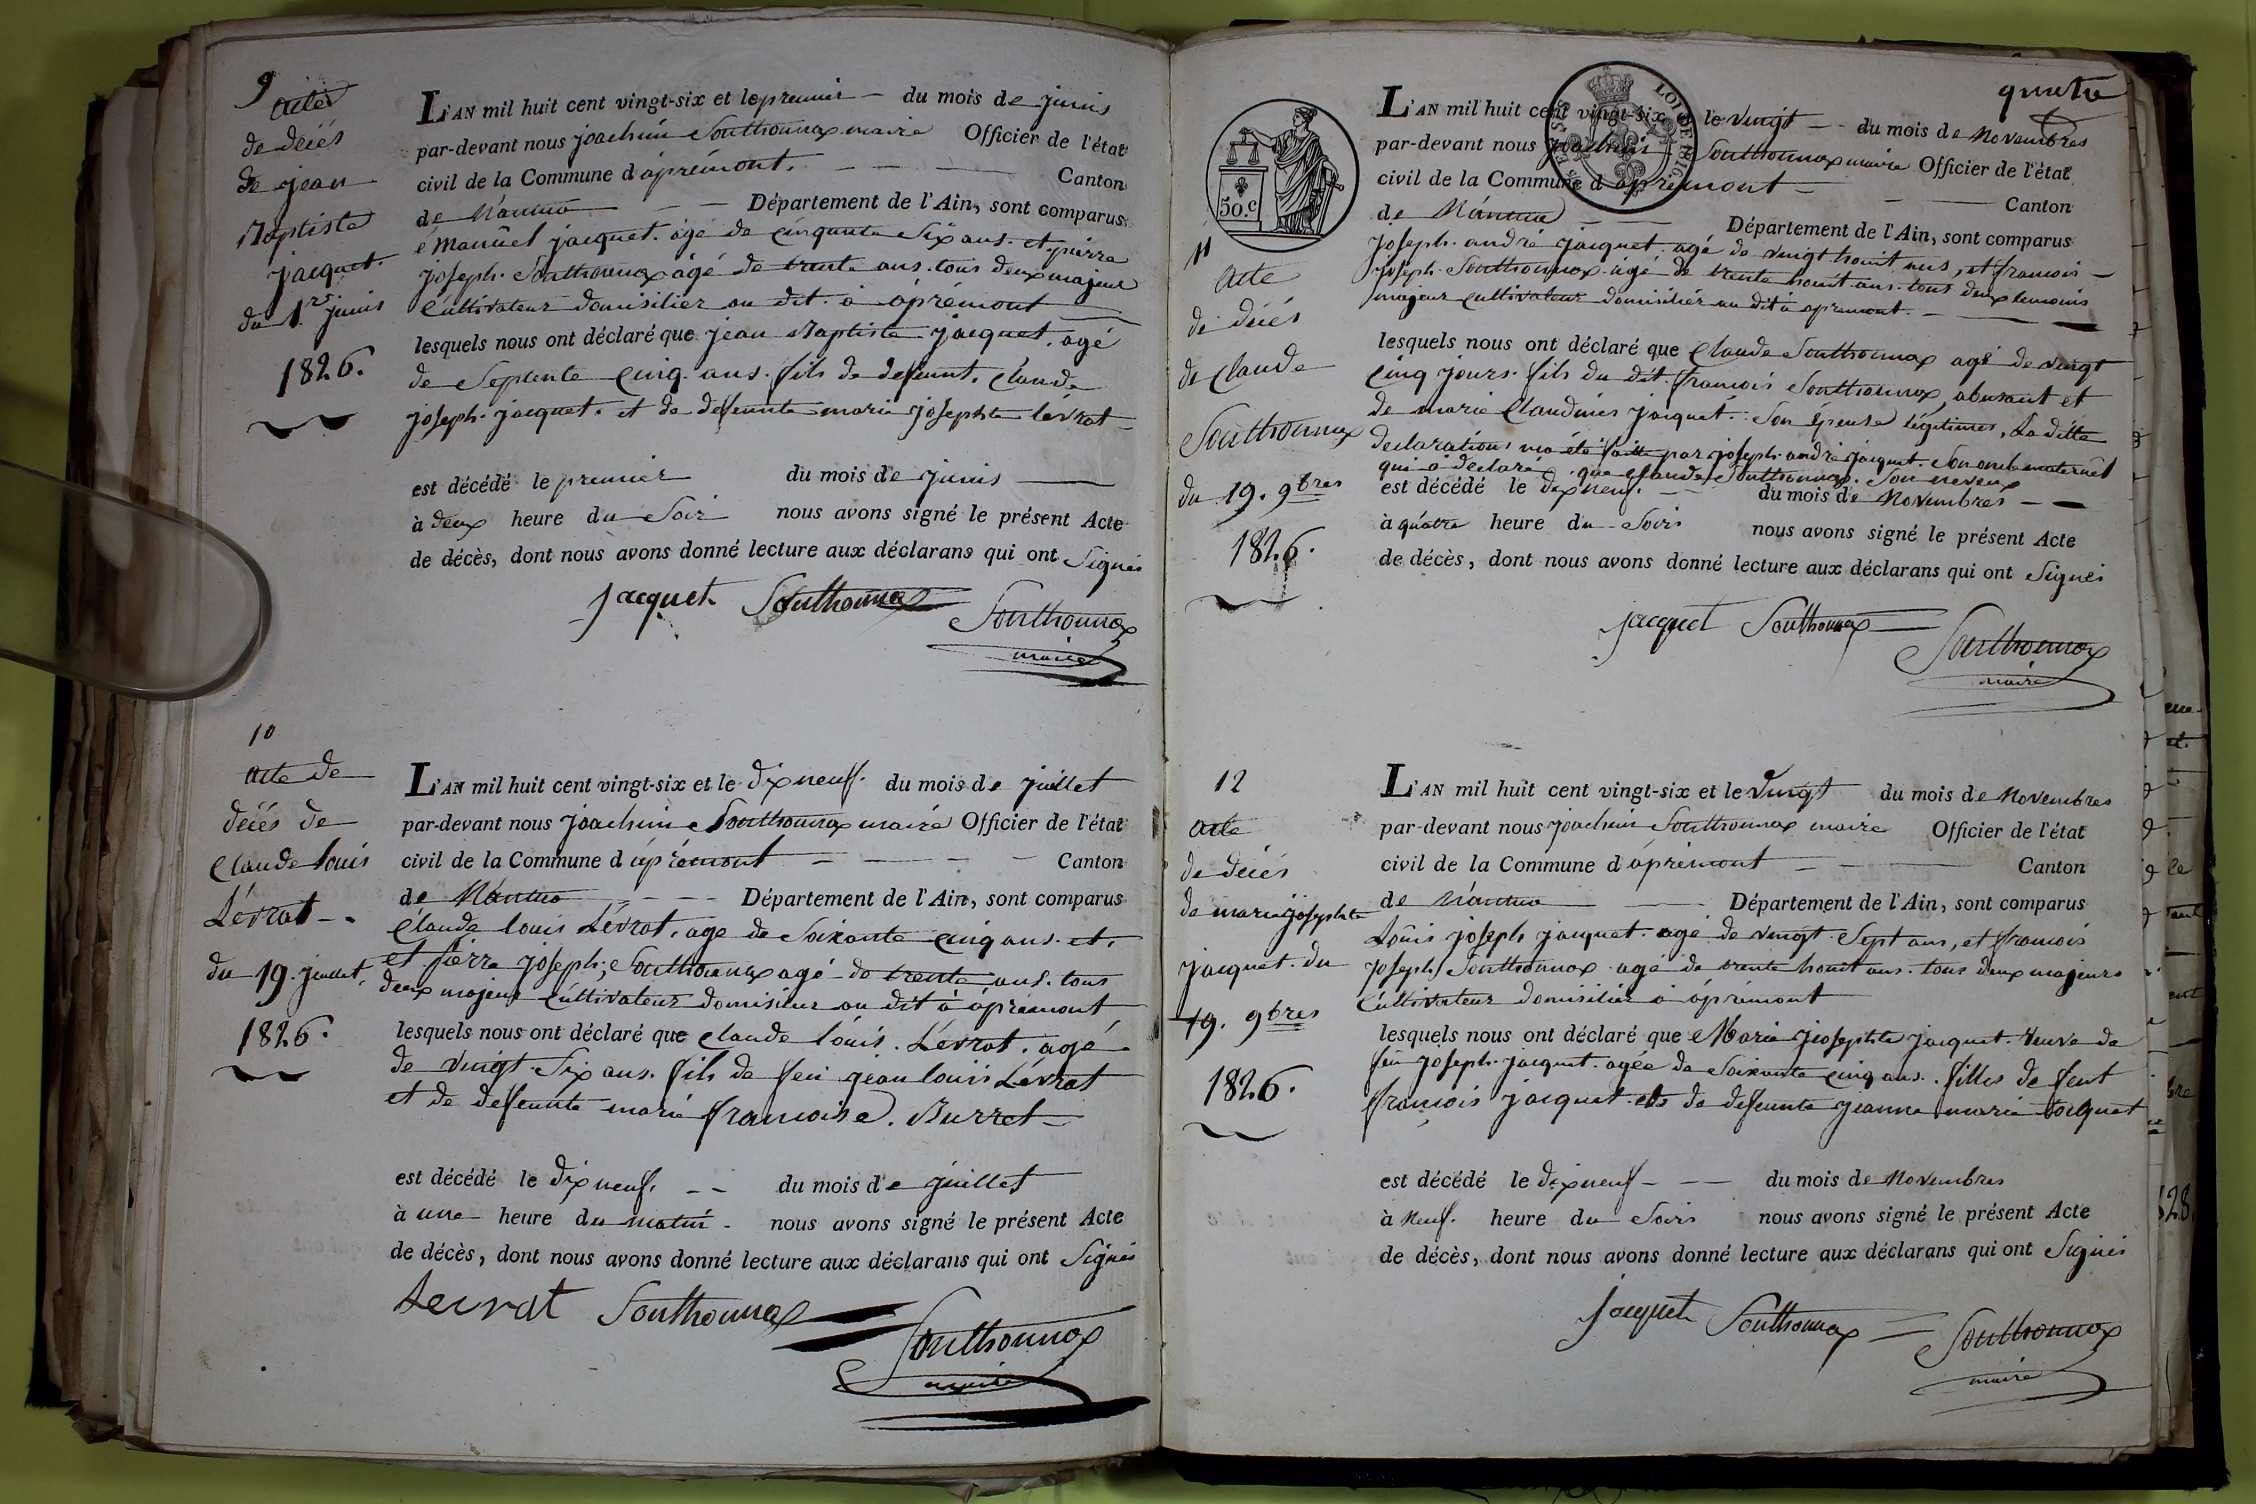 9
acte
de décés
de jean
Baptiste
jacquet.
du 1.er juins
1826.
L'AN mil huit cent vingt-six et le premier du mois de juins
par-devant nous joachim Southonnax maire Officier de l'état
civil de la Commune d'aprémont. Canton
de Nantua Département de l'Ain, sont comparus
émanuel jacquet. agé de cinquante six ans. et pierre
joseph. Southonnax agé de trente ans. tous deux majeur
cultivateur domisilier au dit. à aprémont
lesquels nous ont déclaré que jean Baptiste jacquet. agé
de Septente cinq. ans. fils de defeunt. Claude
joseph. jacquet. et de defeunte marie josephte lévrat
est décédé le premier du mois de juins
à deux heure du Soir nous avons signé le présent Acte
de décès, dont nous avons donné lecture aux déclarans qui ont Signés
jacquet Southonnax Southonnax
maire
10
acte de
décés de
Claude louis
Lévrat
du 19. juillet,
1826.
L'AN mil huit cent vingt-six et le dixneuf. du mois de juillet
par-devant nous joachim Southonnax maire Officier de l'état
civil de la Commune d'aprémont Canton
de Nantua Département de l'Ain, sont comparus
Claude louis Lévrat. age de Soixante cinq ans. et.
et pierre joseph; Southonnax agé de trente ans. tous
deux majeur cultivateur domisilier au dit à aprémont
lesquels nous ont déclaré que Claude louis. Lévrat. agé
de vingt Six ans. fils de feu jean louis Lévrat
et de defeunte marie francoise. Burret
est décédé le dixneuf. du mois de juillet
à une heure du matin nous avons signé le présent Acte
de décès, dont nous avons donné lecture aux déclarans qui ont Signés
Levrat Southonnax Southonnax
maire
50.c
11
acte
de décés
de Claude
Southonnax
du 19. 9bres
1826.
L'AN mil huit cent vingt-six le vingt du mois de Novembres
par-devant nous joachim Southonnax maire Officier de l'état
civil de la Commune d'aprémont Canton
de Nantua Département de l'Ain, sont comparus
joseph. andré jacquet. agé de vingt houit ans, et francois
joseph Southonnax. agé de trente houit ans. tous deux temoins
majeur cultivateur domisilier au dit à apremont.
lesquels nous ont déclaré que Claude Southonnax agé de vingt
cinq jours. fils du dit. francois Southonnax, absant et
de marie Claudines jacquet. Son épeuse légitimes, La ditte
declarations ma été faitte par joseph. andré jacquet. Son oncle maternèl
qui a declaré que Claude Southonnax. Son neveux
est décédé le dixneuf. du mois de Novembres
à quatre heure du Soirs nous avons signé le présent Acte
de décès, dont nous avons donné lecture aux déclarans qui ont Signés
jacquet Southonnax Southonnax
maire
12
acte
de décés
de marie josephte
jacquet. du
19. 9bres
1826.
L'AN mil huit cent vingt-six et le vingt du mois de Novembres
par-devant nous joachim Southonnax maire Officier de l'état
civil de la Commune d'aprémont Canton
de Nantua Département de l'Ain, sont comparus
Louis joseph jacquet. agé de vingt. Sept ans, et francois
joseph Southonnax. agé de trente houit ans. tous deux majeurs
cultivateur domisilier à aprémont
lesquels nous ont déclaré que Marie josephte jacquet. veuve de
feu joseph. jacquet. agée de Soixante cinq ans. filles de feut
francois jacquet. et de defeunte jeanne marie
est décédé le dixneuf du mois de Novembres
à neuf. heure du Soirs nous avons signé le présent Acte
de décès, dont nous avons donné lecture aux déclarans qui ont Signés
jacquet Southonnax Southonnax
maire